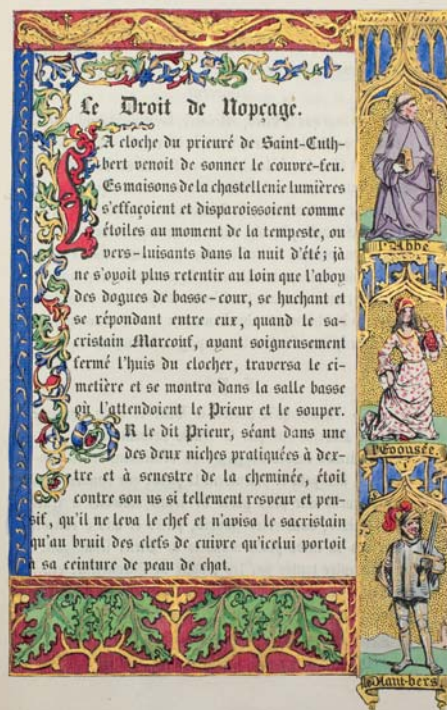 Le Droit de Nopçage.
LA cloche du prieuré de Saint-Cuth-
bert venoit de sonner le couvre-feu.
Es maisons de la chastellenie lumières
s'effaçoient et disparoissoient comme
étoiles au moment de la tempeste, ou
vers-luisants dans la nuit d'été; jà
ne s'oyoit plus retentir au loin que l'aboy
des dogues de basse-cour, se huchant et
se répondant entre eux, quand le sa-
cristain Marcouf, ayant soigneusement
fermé l'huis du clocher, traversa le ci-
metière et se montra dans la salle basse
où l'attendoient le Prieur et le souper.
OR le dit Prieur, séant dans une
des deux niches pratiquées à dex-
tre et à senestre de la cheminée, étoit
contre son us si tellement resveur et pen-
sif, qu'il ne leva le chef et n'avisa le sacristain
qu'au bruit des clefs de cuivre qu'icelui portoit
à sa ceinture de peau de chat.
l'Abbé
l'Epousée
le Haut-bers